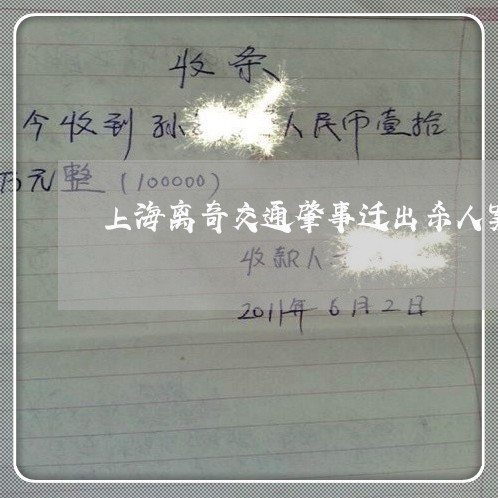 收条
今收到孙 人民币壹拾
万元整(100000)
上海离奇交通肇事迁出杀人案
收款人
2011年6月2日